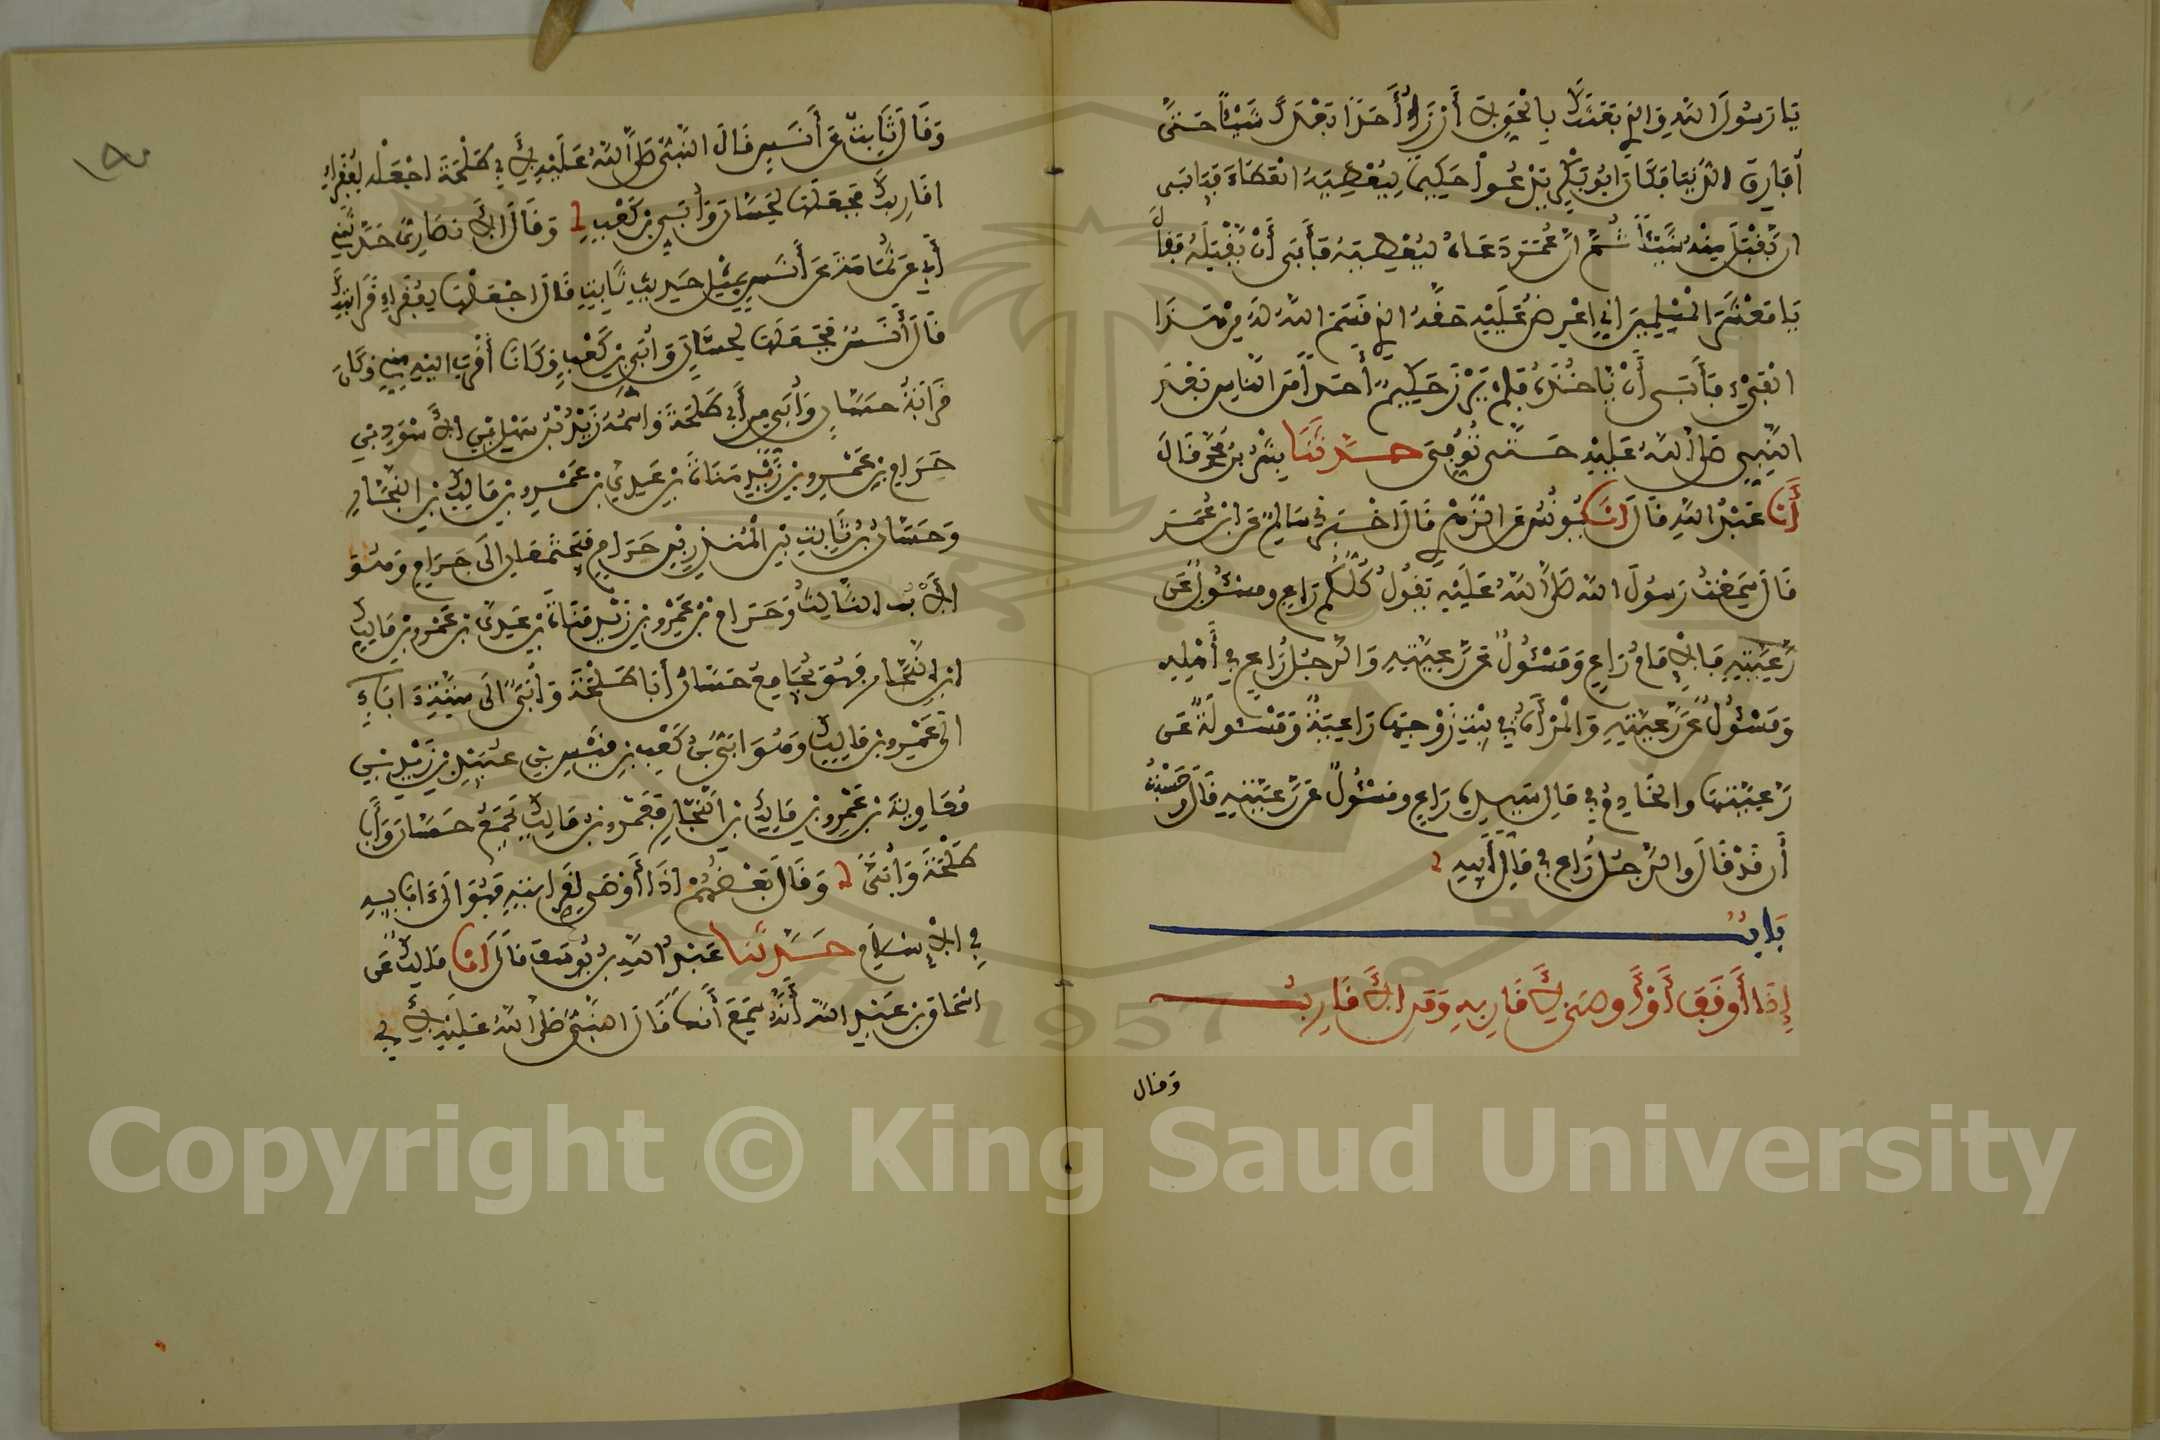 يَا رَسُولَ اللّهِ وَالذِي بَعَثَكَ بِالْحَقِّ لَا أَرْزَأُ أَحَدًا بَعْدَكَ شَيْئًا حَتَّى
أُفَارِقَ الدُّنْيَا فَكَانَ أَبُو بَكْرٍ يَدْعُوا حَكِيمًا لِيُعْطِيَهُ الْعَطَاءَ فَيَابَى
أَنْ يَّقْبَلَ مِنْهُ شَيْئًا ثُمَّ إِنَّ عُمَرَ دَعَاهُ لِيُعْطِيَهُ فَأَبَى أَنْ يَّقْبَلَهُ فَقَالَ
يَا مَعْشَرَ الْمُسْلِمِينَ إِنِّي أَعْرِضُ عَلَيْهِ حَقَّهُ الذِي قَسَمَ اللّهُ لَهُ مِنْ هَذَا
الْفَيْءِ فَأَبَى أَنْ يَّاخُذَهُ فَلَمْ يَرْزَأْ حَكِيمٌ أَحَدًا مِّنَ النَّاسِ بَعْدَ
النَّبِيِّ صَلَّى اللّهُ عَلَيْهِ حَتَّى تُوُفِّيَ حَدَّثَنَا بِشْرُ بْنُ مُحَمَّدٍ قَالَ
أَنَا عَبْدُ اللّهِ قَالَ أَنَا يُونُسُ عَنِ الزُّهْرِي قَالَ أَخْبَرَنِي سَالِمٌ عَنِ ابْنِ عُمَرَ
قَالَ سَمِعْتُ رَسُولَ اللّهِ صَلَّى اللّهُ عَلَيْهِ يَقُولُ كُلُّكُمْ رَاعٍ وَمَسْئُولٌ عَن
رَّعِيَّتِهِ فَالْإِمَامُ رَاعٍ وَمَسْئُولٌ عَن رَّعِيَّتِهِ وَالرَّجُلُ رَاعٍ فِي أَهْلِهِ
وَمَسْئُولٌ عَن رَّعِيَّتِهِ وَالْمَرْأَةُ فِي بَيْتِ زَوْجِهَا رَاعِيَةٌ وَمَسْئُولَةٌ عَن
رَّعِيَّتِهَا وَالْخَادِمُ فِي مَالِ سَيِّدِهِ رَاعٍ وَمَسْئُولٌ عَن رَّعِيَّتِهِ قَالَ وَحَسِبْتُ
أَن قَدْ قَالَ وَالرَّجُلُ رَاعٍ فِي مَالِ أَبِيهِ
بَابُ
إِذَا أَوْقَفَ أَوْ أَوْصَى لِأَقَارِبِهِ وَمَنِ الْأَقَارِبُ
وَقَال
وَقَالَ ثَابِتٌ عَنْ أَنَسٍ قَالَ النَّبِيُّ صَلَّى اللّهُ عَلَيْهِ لِأَبِي طَلْحَةَ اجْعَلْهُ لِفُقَرَاءِ
أَقَارِبِكَ فَجَعَلَهَا لِحَسَّانَ وَأُبَيِّ بْنِ كَعْبٍ وَقَالَ الْأَنْصَارِيُّ حَدَّثَنِي
أَبِي عَنْ ثُمَامَةَ عَنْ أَنَسٍ بِمِثْلِ حَدِيثِ ثَابِتٍ قَالَ اجْعَلْهَا لِفُقَرَاءِ قَرَابَتِكَ
قَالَ أَنَسٌ فَجَعَلَهَا لِحَسَّانَ وَأُبَيِّ بْنِ كَعْبٍ وَكَانَا أَقْرَبَ إِلَيْهِ مِنِّي وَكَانَ
قَرَابَةُ حَسَّانٍ وَأُبَيٍّ مِنْ أَبِي طَلْحَةَ وَاسْمُهُ زَيْدُ بْنُ سَهْلِ بْنِ الْأَسْوَدِ بْنِ
حَرَامِ بْنِ عَمْرِو بْنِ زَيْدِ مَنَاةَ بْنِ عَدِيِّ بْنِ عَمْرِو بْنِ مَالِكِ بْنِ النَّجَّارِ
وَحَسَّانُ بْنُ ثَابِتِ بْنِ الْمُنْذِرِ بْنِ حَرَامٍ فَيَجْتَمِعَانِ إِلَى حَرَامٍ وَهُوَ
الْأَبُ الثَّالِثُ وَحَرَامُ بْنُ عَمْرِو بْنِ زَيْدِ مَنَاةَ بْنِ عَدِيِّ بْنِ عَمْرِو بْنِ مَالِكِ
ابْنِ النَّجَّارِ فَهُوَ يُجَامِعُ حَسَّانُ أَبَا طَلْحَةَ وَأُبَيٌّ إِلَى سِتَّةِ ءَابَاءٍ
إِلَى عَمْرِو بْنِ مَالِكٍ وَهُوَ أُبَيُّ بْنُ كَعْبِ بْنِ قَيْسِ بْنِ عُبَيْدِ بْنِ زَيْدِ بْنِ
مُعَاوِيَةَ بْنِ عَمْرِو بْنِ مَالِكِ بْنِ النَّجَّارِ فَعَمْرُو بْنُ مَالِكٍ يَجْمَعُ حَسَّانَ وَأَبَا
طَلْحَةَ وَأُبَيًّا وَقَالَ بَعْضُهُمْ إِذَا أَوْصَى لِقَرَابَتِهِ فَهُوَ إِلَى ءَابَائِهِ
فِي الْإِسْلَامِ حَدَّثَنَا عَبْدُ اللّهِ بْنُ يُوسُفَ قَالَ أَنَا مَالِكٌ عَن
إِسْحَاقَ بْنِ عَبْدِ اللّهِ أَنَّهُ سَمِعَ أَنَسًا قَالَ النَّبِيُّ صَلَّى اللّهُ عَلَيْهِ لِأَبِي
Copyright © King Saud University
1957